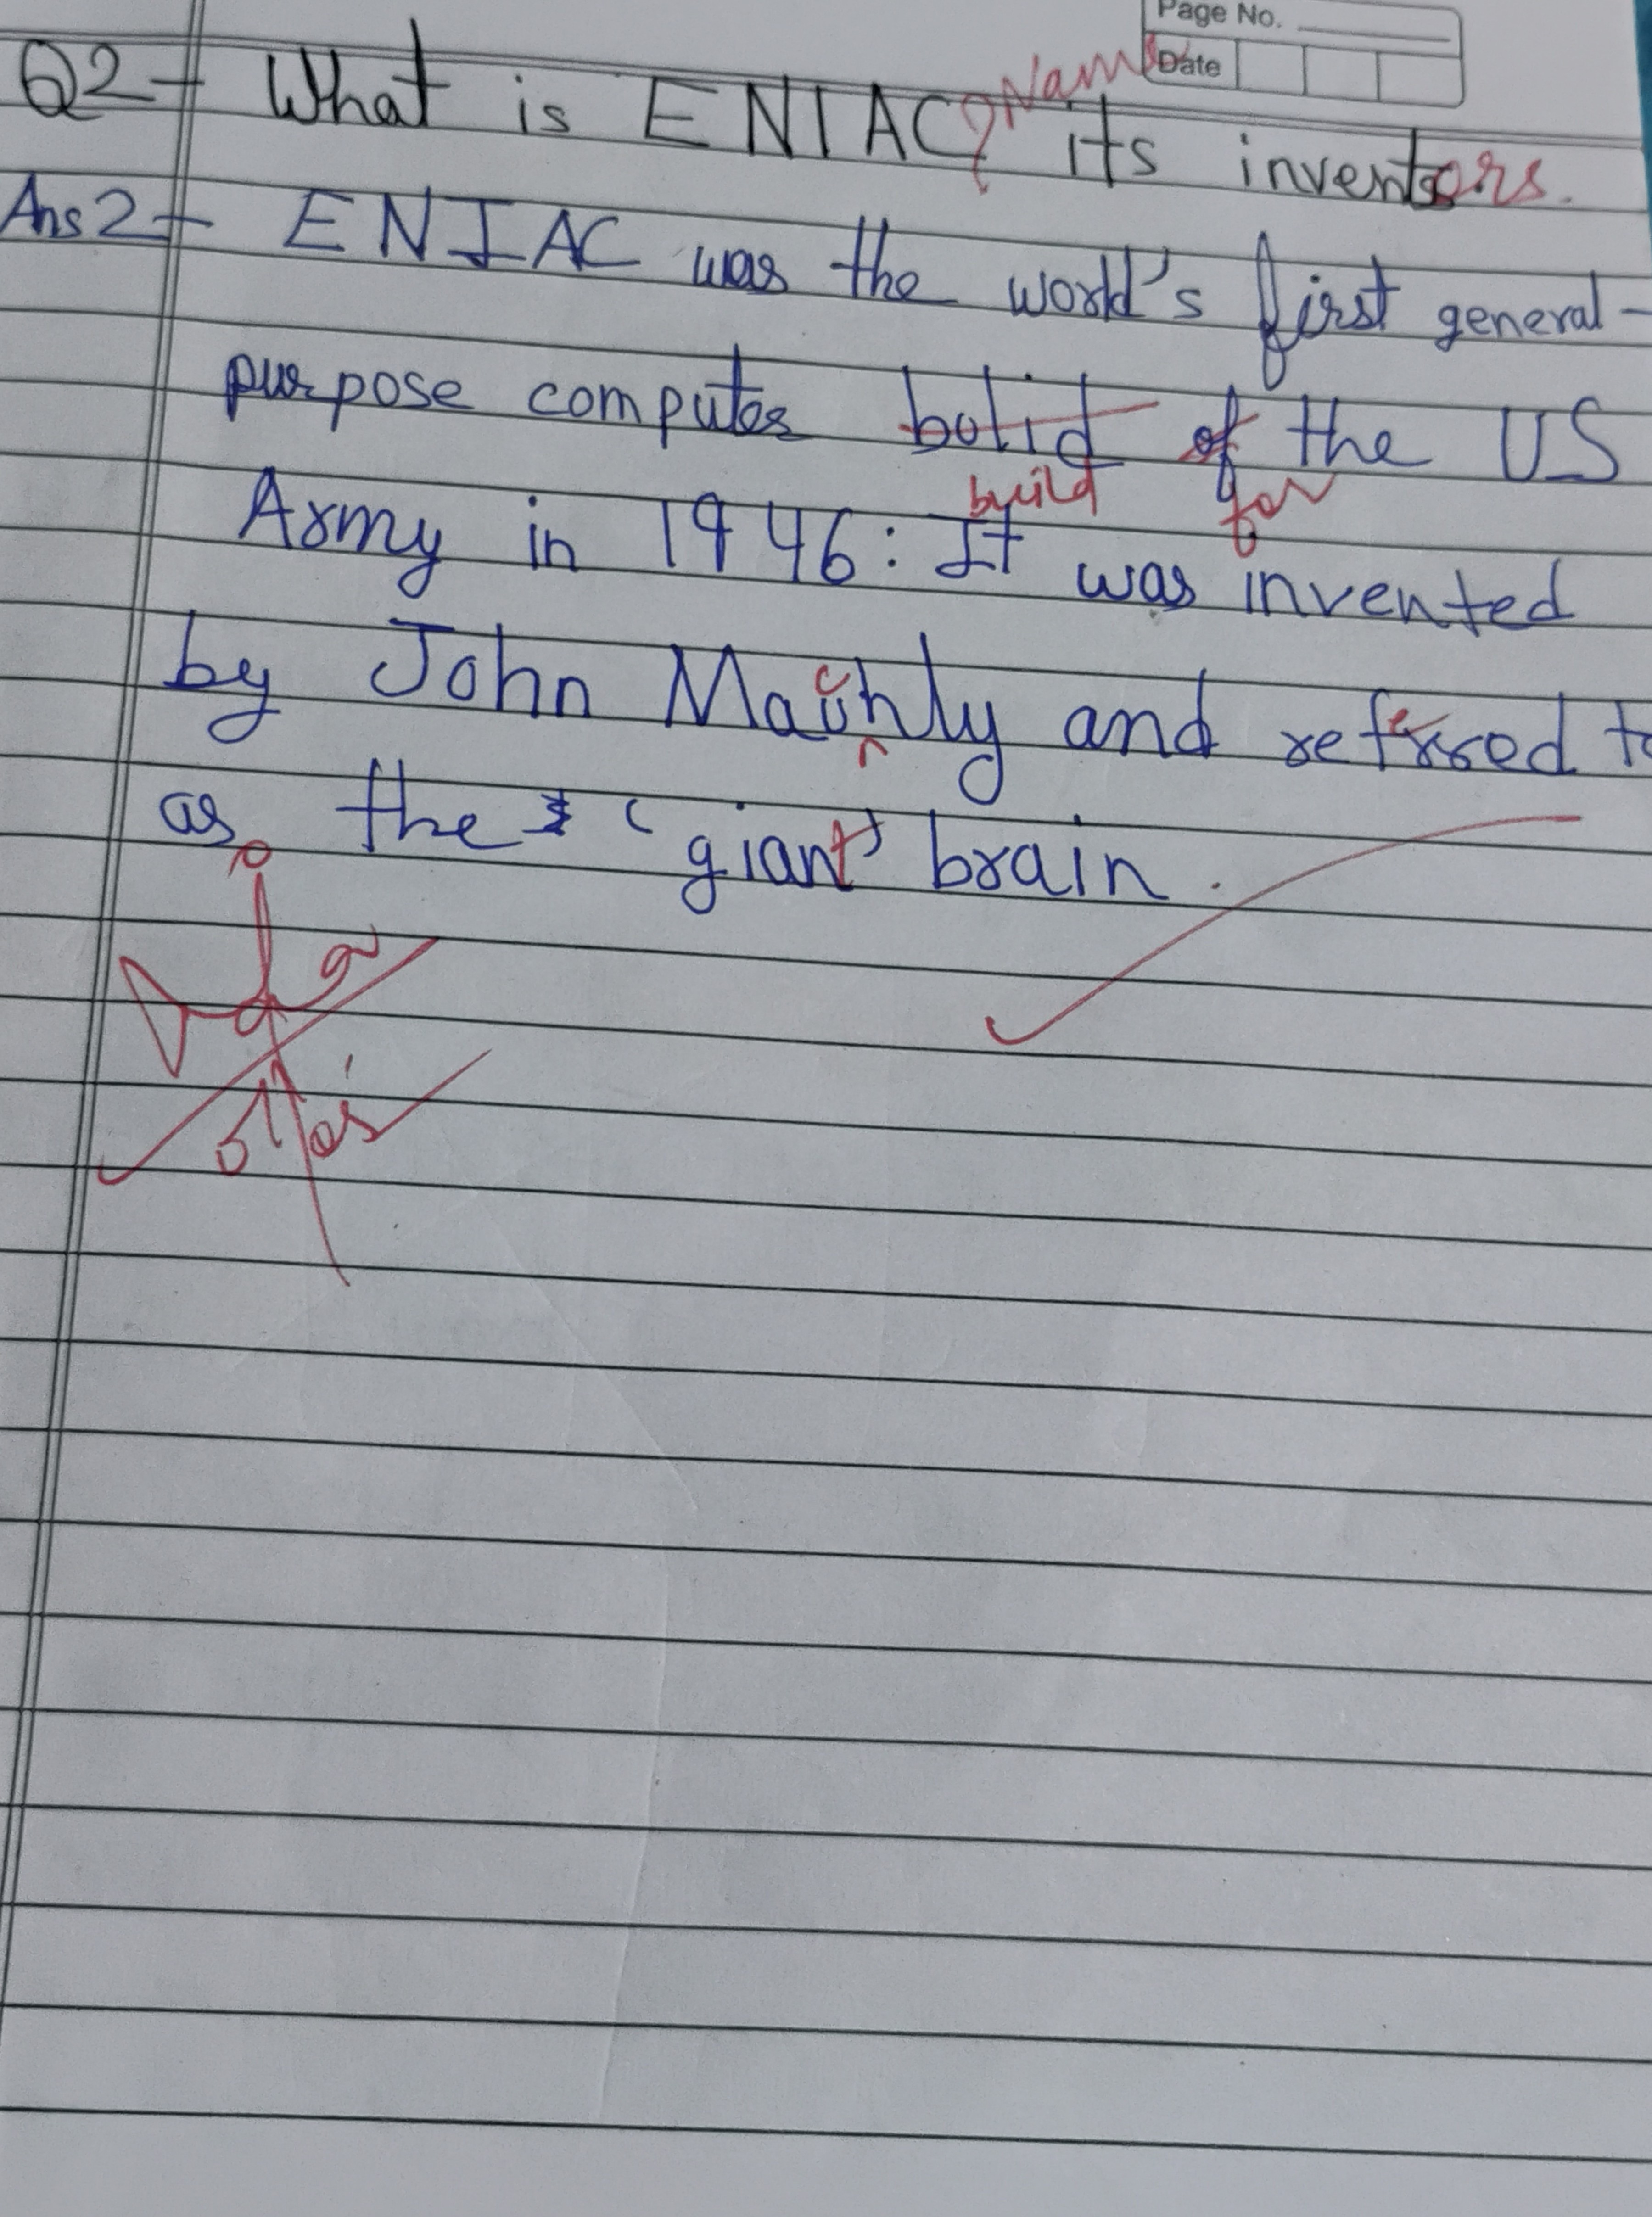 Page No.
Date
Q2- What is ENIAC? Name its inventors.
Ans2- ENIAC was the world's first general-
purpose computer bulid of the US
build for
Army in 1946: It was invented
by John Mauchly and referred to
as the 'giant' brain.